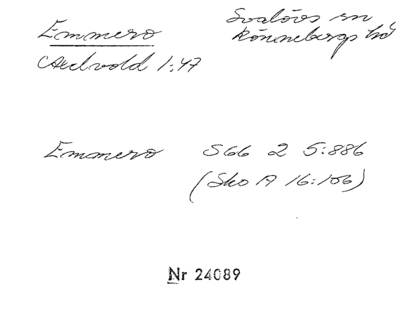 Emmero
Svalövs sn
Aselvold 1:47
Rönnebergs hd
Emmero S66 2 5:886
(Sko A 16:106)
Nr 24089